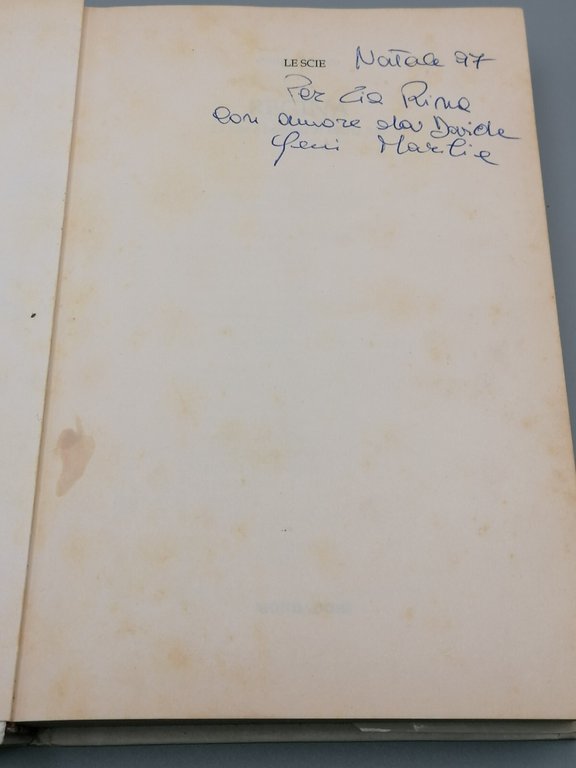 LE SCIE Natale 97
Per Zia Rina
con amore da Davide
Geni Marlie